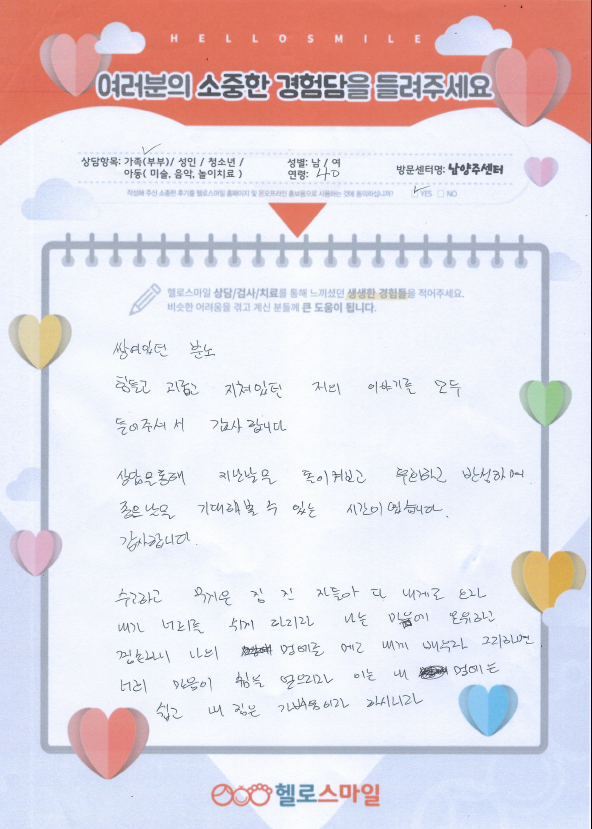 HELLOSMILE
여러분의 소중한 경험담을 들려주세요
상담항목: 가족(부부)/ 성인 / 청소년 /
아동( 미술, 음악, 놀이치료 )
성별: 남 / 여
연령: 40
방문센터명: 남양주센터
작성해 주신 소중한 후기를 헬로스마일 홈페이지 및 온오프라인 홍보용으로 사용하는 것에 동의하십니까? YES NO
헬로스마일 상담/검사/치료를 통해 느끼셨던 생생한 경험들을 적어주세요.
비슷한 어려움을 겪고 계신 분들께 큰 도움이 됩니다.
쌓여있던 분노
힘들고 괴롭고 지쳐있던 저의 이야기를 모두
들어주셔서 감사합니다
상담을통해 지난날을 돌이켜보고 반성하며
좋은날을 기대해볼 수 있는 시간이였습니다.
감사합니다.
수고하고 무거운 짐 진 자들아 다 내게로 오라
내가 너희를 쉬게 하리라 나는 마음이 온유하고
겸손하니 나의 멍에를 메고 내게 배우라 그리하면
너희 마음이 쉼을 얻으리라 이는 내 멍에는
쉽고 내 짐은 가벼움이라 하시니라
헬로스마일